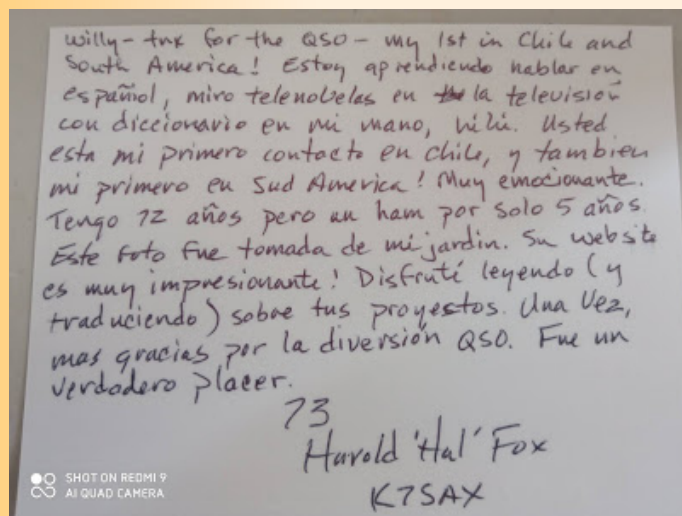 Willy - tnx for the QSO - my 1st in Chile and
South America! Estoy aprendiendo hablar en
español, miro telenobelas en la televisión
con diccionario en mi mano, hihi. Usted
esta mi primero contacto en Chile, y tambien
mi primero en Sud America! Muy emocionante.
Tengo 72 años pero un ham por solo 5 años.
Este foto fue tomada de mi jardin. Su website
es muy impresionante! Disfruté leyendo (y
traduciendo) sobre tus proyestos. Una Vez,
mas gracias por la diversión QSO. Fue un
verdadero placer.
73
Harold 'Hal' Fox
K7SAX
SHOT ON REDMI 9
AI QUAD CAMERA